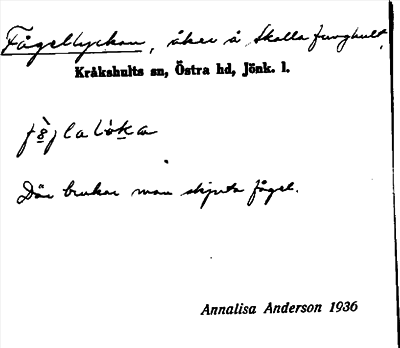 Fågellyckan, åker å Skalla ljunghult,
Kråkshults sn, Östra hd, Jönk. l.
Där brukar man skjuta fågel.
Annalisa Anderson 1936